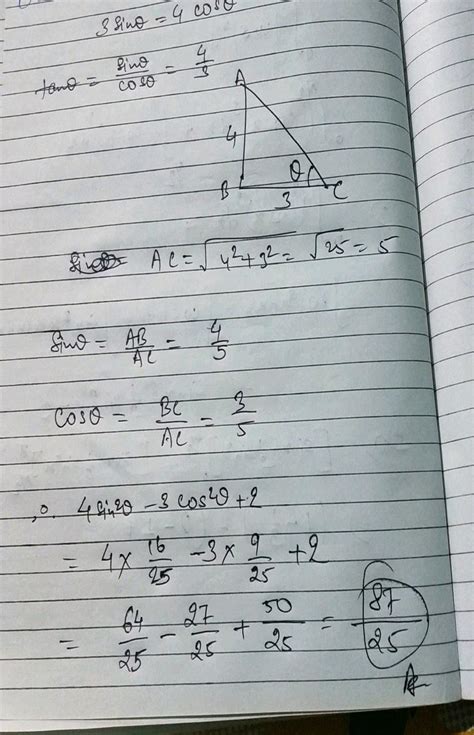 3 sinθ = 4 cosθ
tanθ = sinθ/cosθ = 4/3
A
4
B
θ
C
3
AC = √4²+3² = √25 = 5
Sinθ = AB/AC = 4/5
Cosθ = BC/AC = 3/5
∴ 4 sin²θ - 3 cos²θ + 2
= 4 × 16/25 - 3 × 9/25 + 2
= 64/25 - 27/25 + 50/25 = 87/25